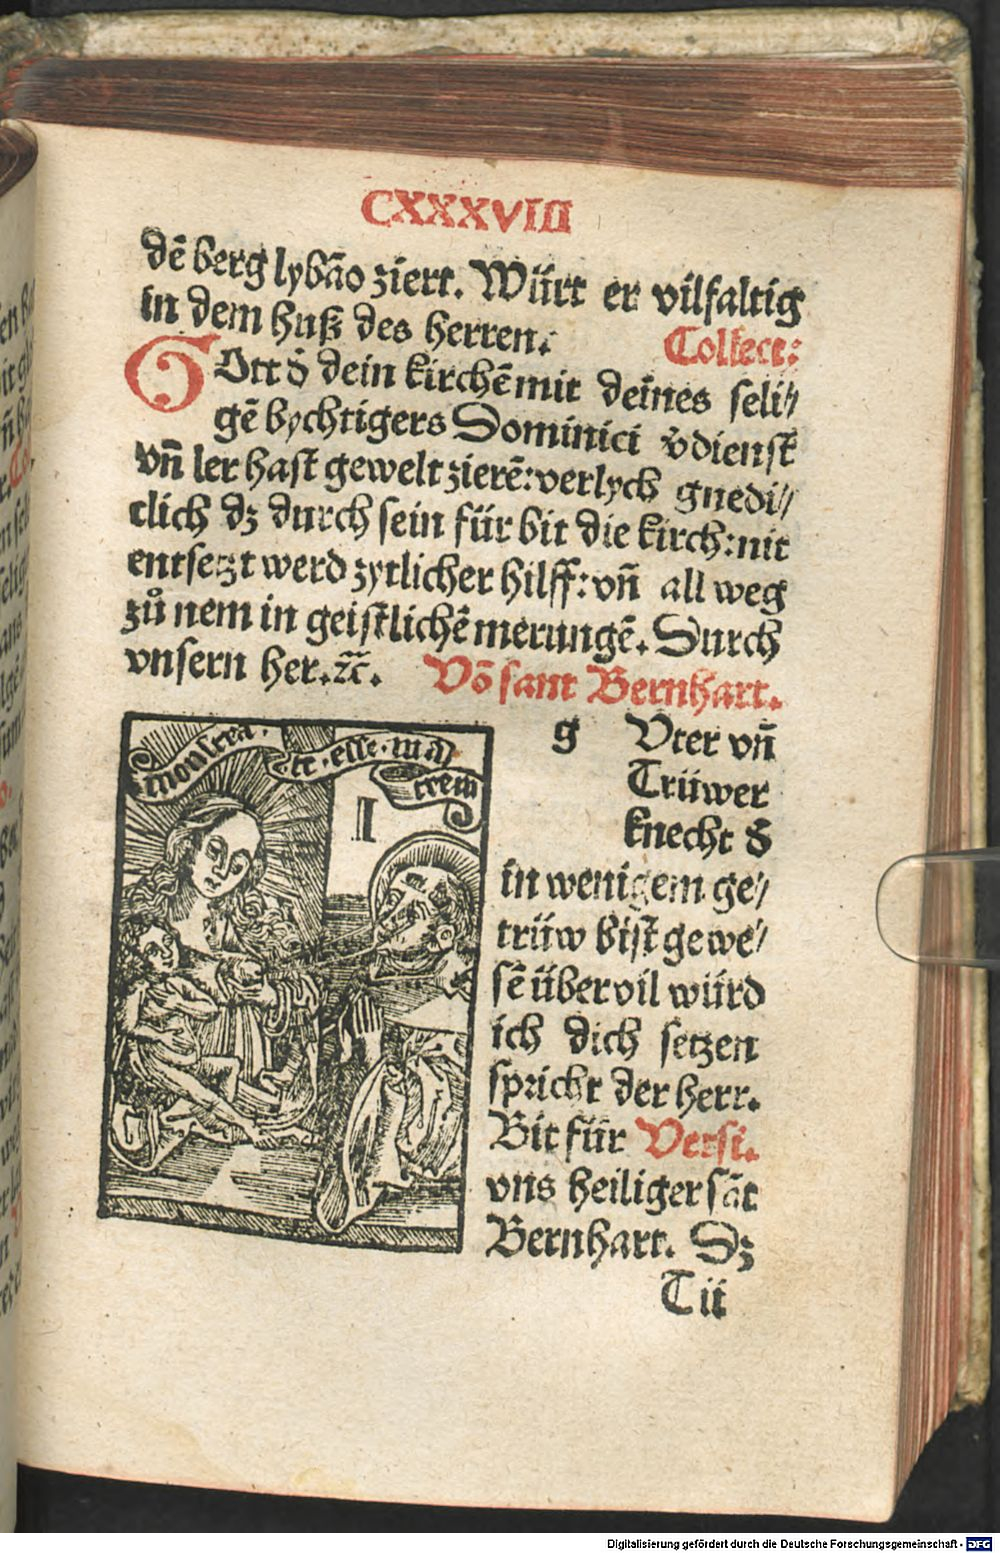 CXXXVIII
dē berg lybāo ziert. Würt er vilfaltig
in dem huß des herren.
Collect:
Gott ð dein kirchē mit deines seli⸗
gē bychtigers Dominici v̄dienst
vñ ler hast gewelt zierē: verlych gnedi⸗
clich dz durch sein für bit die kirch: nit
entsetzt werd zytlicher hilff: vñ all weg
zů nem in geistlichē merungē. Durch
vnsern her. ꝛc̄.
Vō sant Bernhart.
monstra. te. esse. ma
trem
g Vter vñ
Trüwer
knecht ð
in wenigem ge⸗
trüw bist gewe⸗
sē über vil würd
ich dich setzen
spricht der herr.
Bit für Versi.
vns heiliger sāt
Bernhart. Dz
T ii
Digitalisierung gefördert durch die Deutsche Forschungsgemeinschaft - DFG